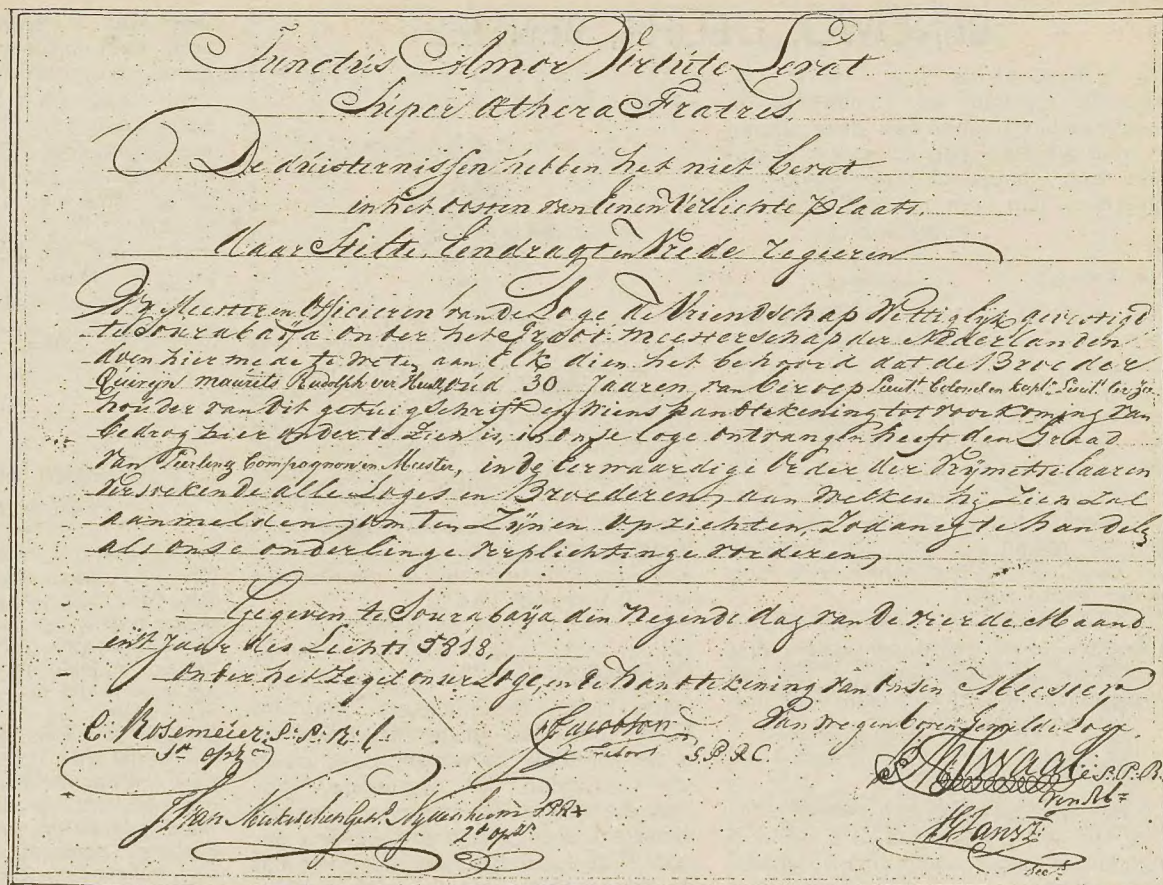 Junctus Amor Virtute Levat
Super Æthera Fratres.
De duisternissen hebben het niet bevat
in het oosten van eenen Verlichte plaats.
Maar Stilte, Eendragt en Vrede regeeren
Wy Meester en Officieren van de Loge de Vriendschap Wettiglyk gevestigt
te Sourabaÿa onder het Groot-meesterschap der Nederlanden
doen hier mede te weten aan Elk dien het behoord dat de Broeder
Quiryn Maurits Rudolph ver Huell oud 30 Jaaren van beroep Lieut. Colonel en Capt. Lieut. ter zee
houder van dit getuigschrift en wiens handtekening tot voorkoming van
bedrog hier onder te Zien is, in onse loge ontvangen heeft den Graad
van Leerling Compagnon en Meester, in de Eerwaardige Order der Vrymetselaaren
Versoekende alle Loges en Broederen, aan Welken hy Zien Zal
aanmelden, om ten Zÿnen opzichten, Zodanig te handelen
als onse onderlinge verplichtinge vorderen,
Gegeven te Sourabaÿa den Negende dag van de vierde Maand
in't Jaar des Lichts 5818,
onder het Zegel onser Loge, en de handtekening van onsen Meester
C. Rosemeier: S: P: R: C: Jacobson S.P.R.C. Van wegen boven gemelde Loge
1st opz. S. P. R.
J. van Nieukerken Gen. Nyvenheim
2de opz. H. Jansz.
Sec.